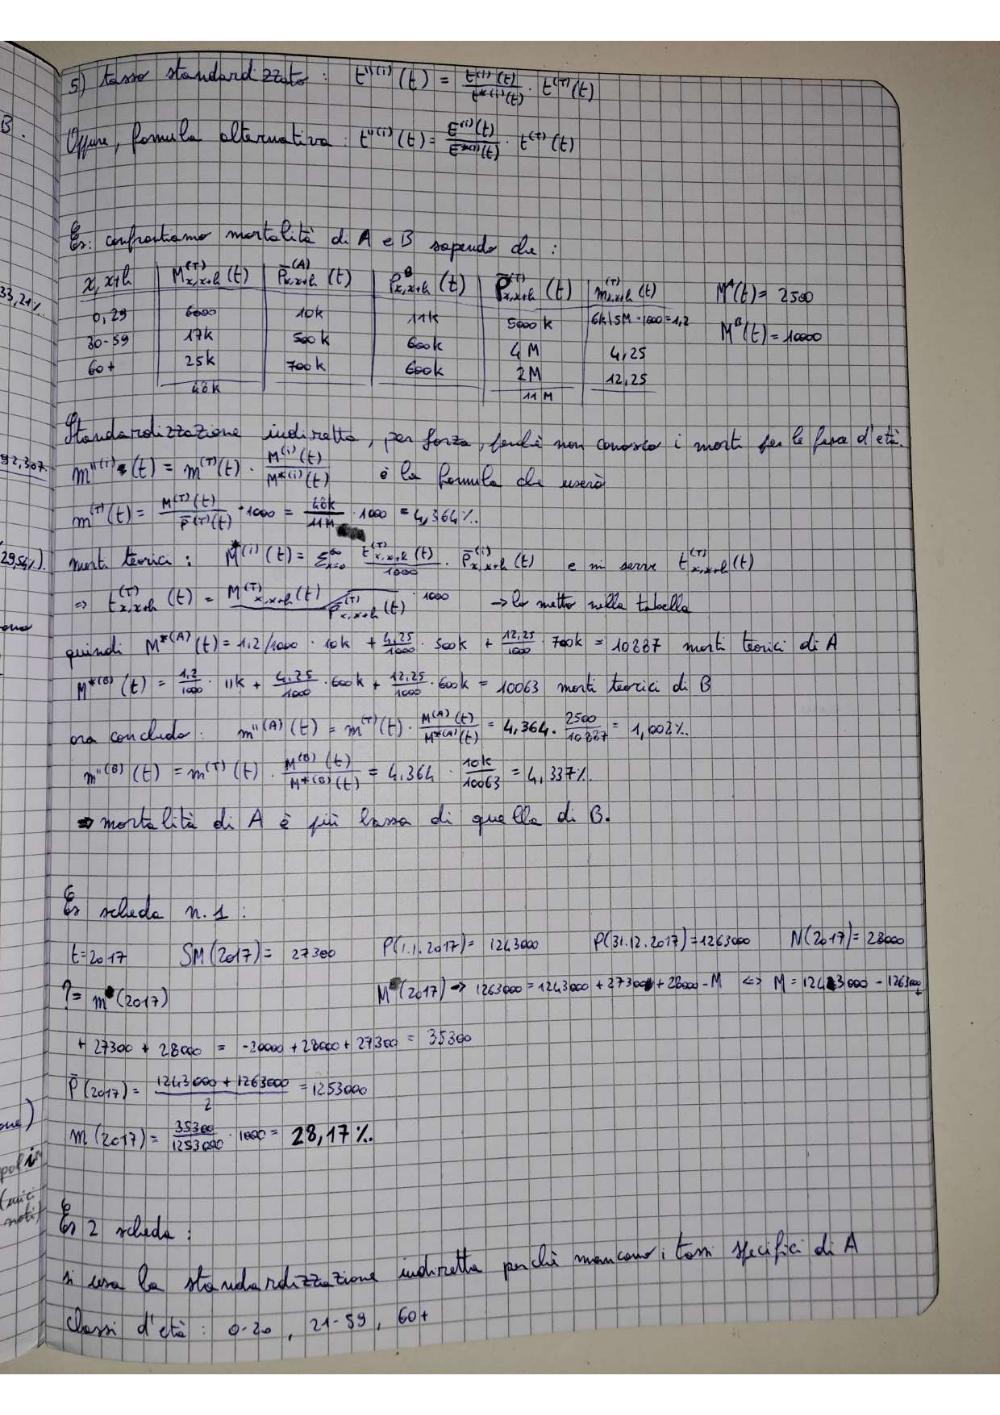 5) tasso standardizzato: t''⁽ⁱ⁾(t) = t⁽ⁱ⁾(t) / t*⁽ⁱ⁾(t) · t⁽ᵀ⁾(t)
Oppure, formula alternativa: t''⁽ⁱ⁾(t) = E⁽ⁱ⁾(t) / E*⁽ⁱ⁾(t) · t⁽ᵀ⁾(t)
Es: confrontiamo mortalità di A e B sapendo che:
x, x+h | M⁽ᵀ⁾x,x+h (t) | P̄⁽ᴬ⁾x,x+h (t) | P̄ᴮx,x+h (t) | P̄⁽ᵀ⁾x,x+h (t) | m⁽ᵀ⁾x,x+h (t) Mᴬ(t) = 2500
0,29 | 6000 | 10k | 11k | 5000k | 6k/5M · 1000 = 1,2 Mᴮ(t) = 10000
30-59 | 17k | 500k | 600k | 4M | 4,25
60+ | 25k | 700k | 600k | 2M | 12,25
48k 11M
Standardizzazione indiretta, per forza, perché non conosco i morti per le fasce d'età.
m''⁽ⁱ⁾(t) = m⁽ᵀ⁾(t) · M⁽ⁱ⁾(t) / M*⁽ⁱ⁾(t) è la formula che userò
m⁽ᵀ⁾(t) = M⁽ᵀ⁾(t) / P̄⁽ᵀ⁾(t) · 1000 = 48k / 11M · 1000 = 4,364‰
morti teorici: M*⁽ⁱ⁾(t) = Σ∞x=0 t⁽ᵀ⁾x,x+h (t) / 1000 · P̄⁽ⁱ⁾x,x+h (t) e mi serve t⁽ᵀ⁾x,x+h (t)
⇒ t⁽ᵀ⁾x,x+h (t) = M⁽ᵀ⁾x,x+h (t) / P̄⁽ᵀ⁾x,x+h (t) · 1000 → lo metto nella tabella
quindi M*⁽ᴬ⁾(t) = 1,2/1000 · 10k + 4,25/1000 · 500k + 12,25/1000 · 700k = 10887 morti teorici di A
M*⁽ᴮ⁾(t) = 1,2/1000 · 11k + 4,25/1000 · 600k + 12,25/1000 · 600k = 10063 morti teorici di B
ora concludo: m''⁽ᴬ⁾(t) = m⁽ᵀ⁾(t) · M⁽ᴬ⁾(t) / M*⁽ᴬ⁾(t) = 4,364 · 2500 / 10887 = 1,002‰
m''⁽ᴮ⁾(t) = m⁽ᵀ⁾(t) · M⁽ᴮ⁾(t) / M*⁽ᴮ⁾(t) = 4,364 · 10k / 10063 = 4,337‰
⇒ mortalità di A è più bassa di quella di B.
Es scheda n.1:
t=2017 SM(2017) = 27300 P(1.1.2017) = 1243000 P(31.12.2017) = 1263000 N(2017) = 28000
? = m(2017) M(2017) → 1263000 = 1243000 + 27300 + 28000 - M ⟺ M = 1243000 - 1263000 +
+ 27300 + 28000 = -20000 + 28000 + 27300 = 35300
P̄(2017) = 1243000 + 1263000 / 2 = 1253000
m(2017) = 35300 / 1253000 · 1000 = 28,17‰
Es 2 scheda:
si usa la standardizzazione indiretta perché mancano i tassi specifici di A
Classi d'età: 0-20, 21-59, 60+
B.
33,21%
92,307.
29,54%).